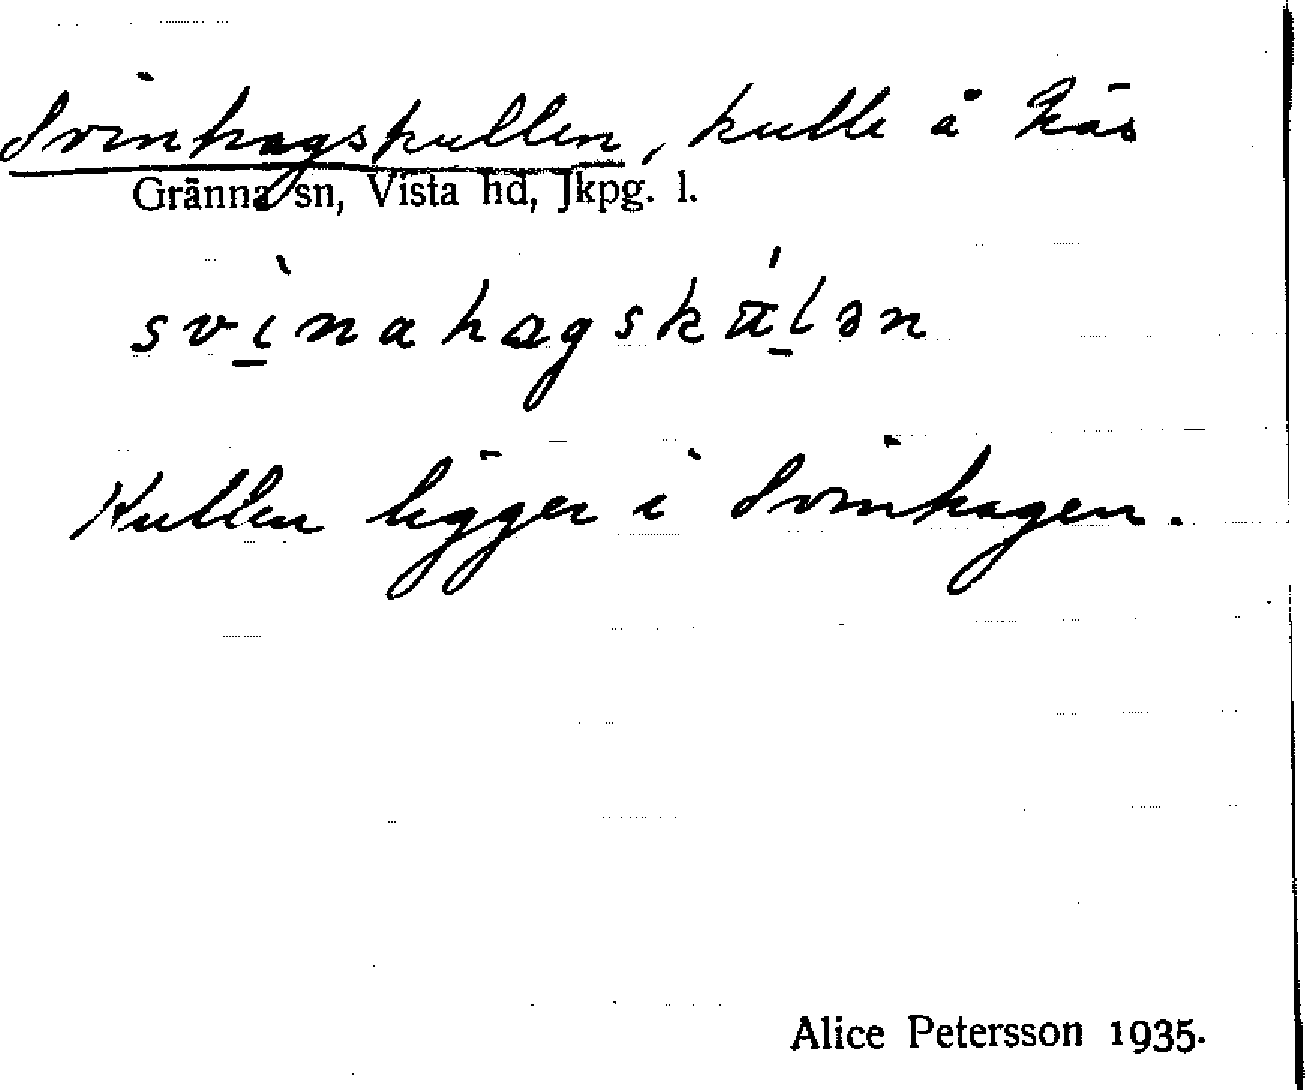 Svinhagskullen, kulle å Näs
Gränna sn, Vista hd, Jkpg. l.
Kullen ligger i Svinhagen.
Alice Petersson 1935.